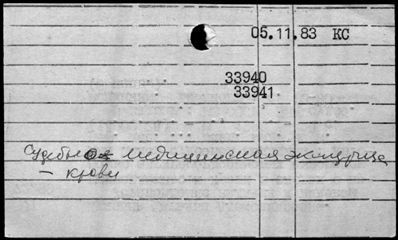 05.11.83 КС
33940
33941
Судебная медицинская экспертиза
— крови